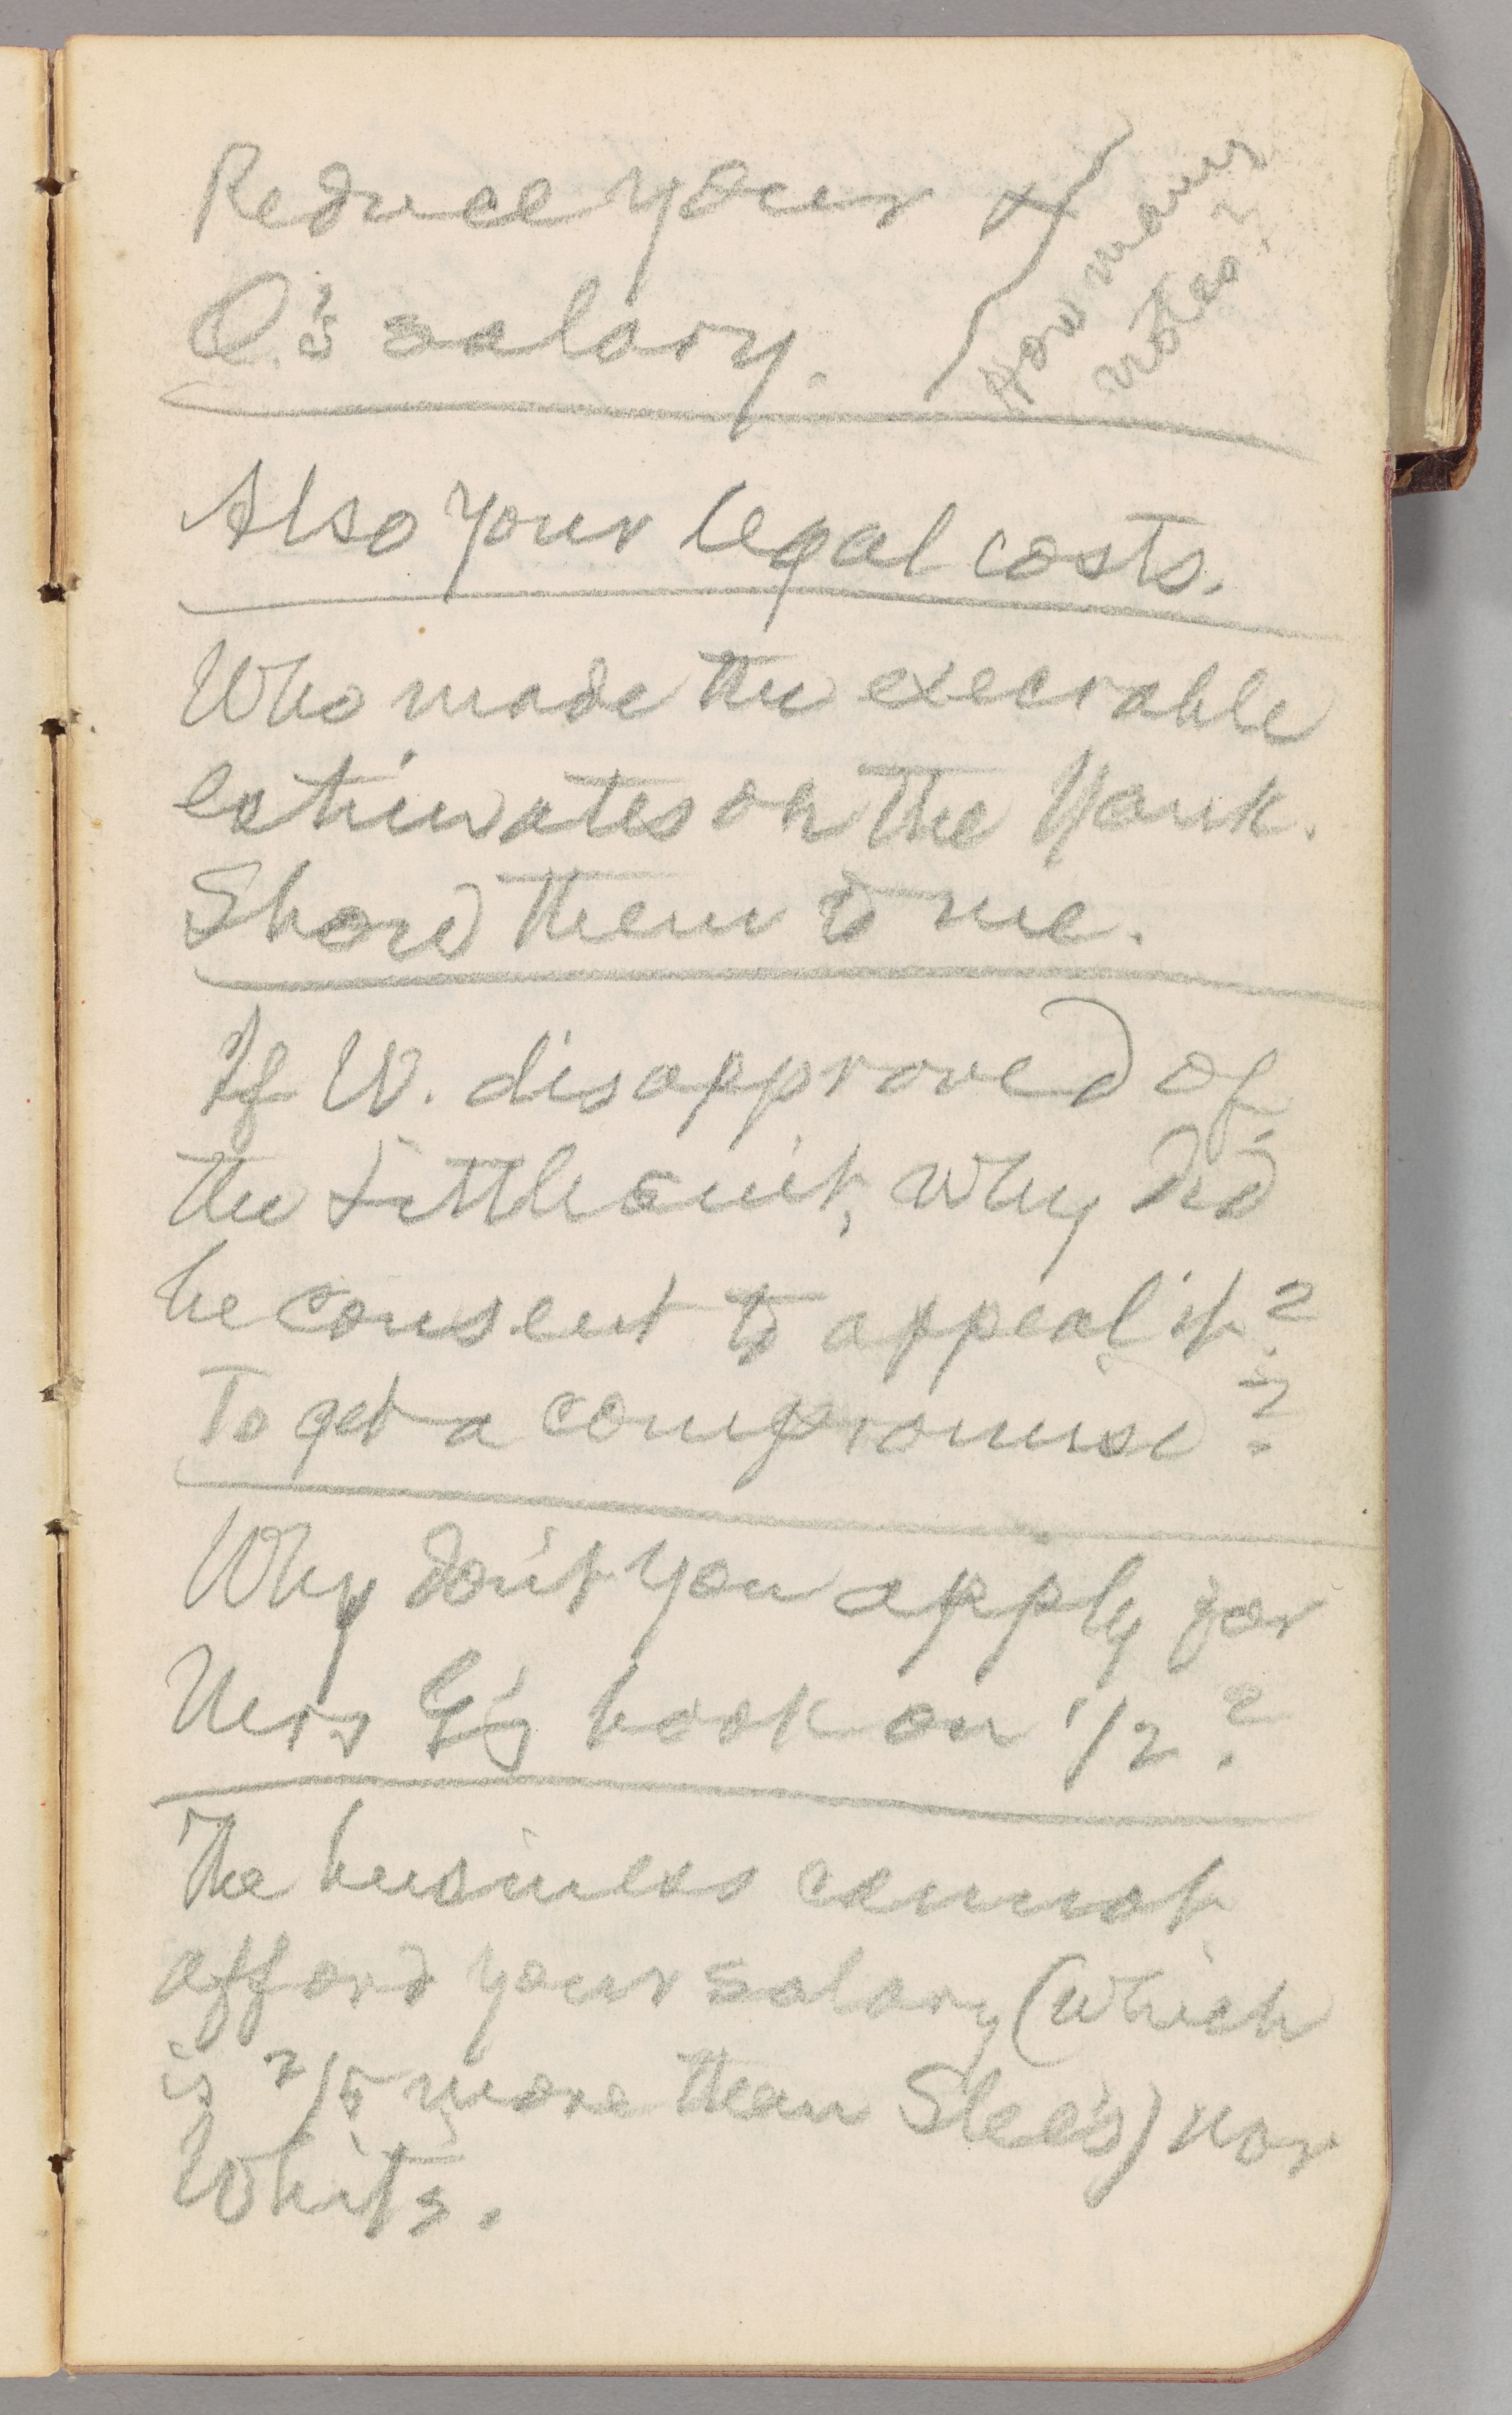 Reduce your &
O.'s salary.
How many
votes?
Also your legal costs.
Who made the execrable
estimates on the Yank.
Show them to me.
If W. disapproved of
the Little suit, why did
he consent to appeal it?
To get a compromise?
Why don't you apply for
Mrs G's book on 1/2?
The business cannot
afford your salary (which
is 2/5 more than Slee's) nor
Whit's.